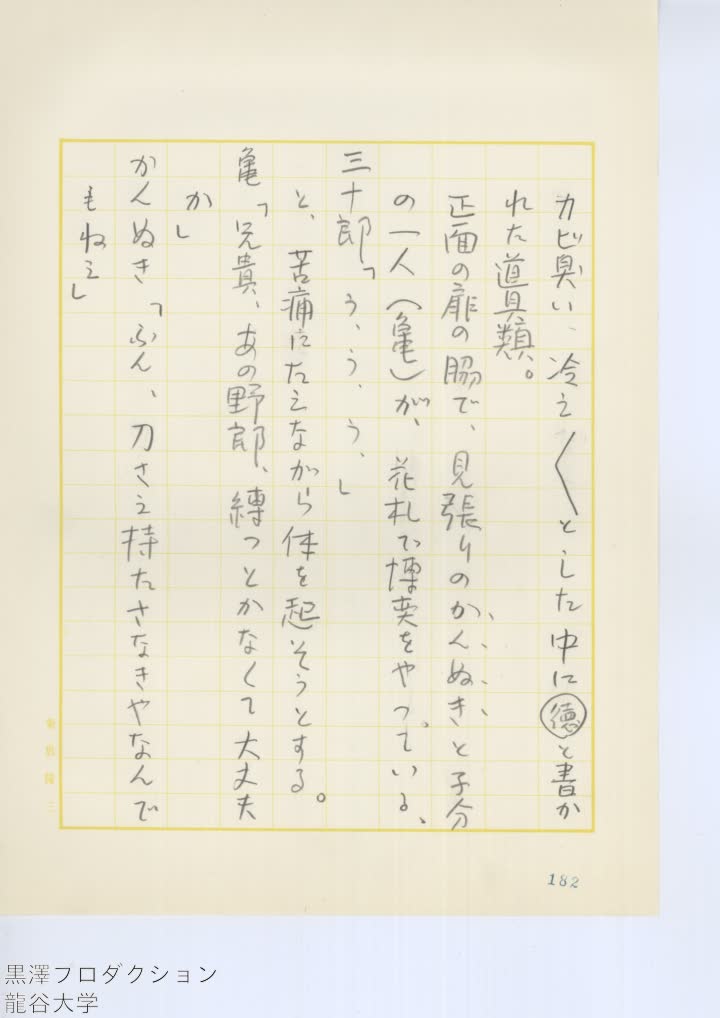 カビ臭い、冷え〱とした中に徳と書か
れた道具類。
正面の扉の脇で、見張りのかんぬきと子分
の一人(亀)が、花札で博奕をやっている、
三十郎「う、う、う、」
と、苦痛にたえながら体を起そうとする。
亀「兄貴、あの野郎、縛っとかなくて大丈夫
か」
かんぬき「ふん、刀さえ持たさなきやなんで
もねえ」
182
黒澤プロダクション
龍谷大学